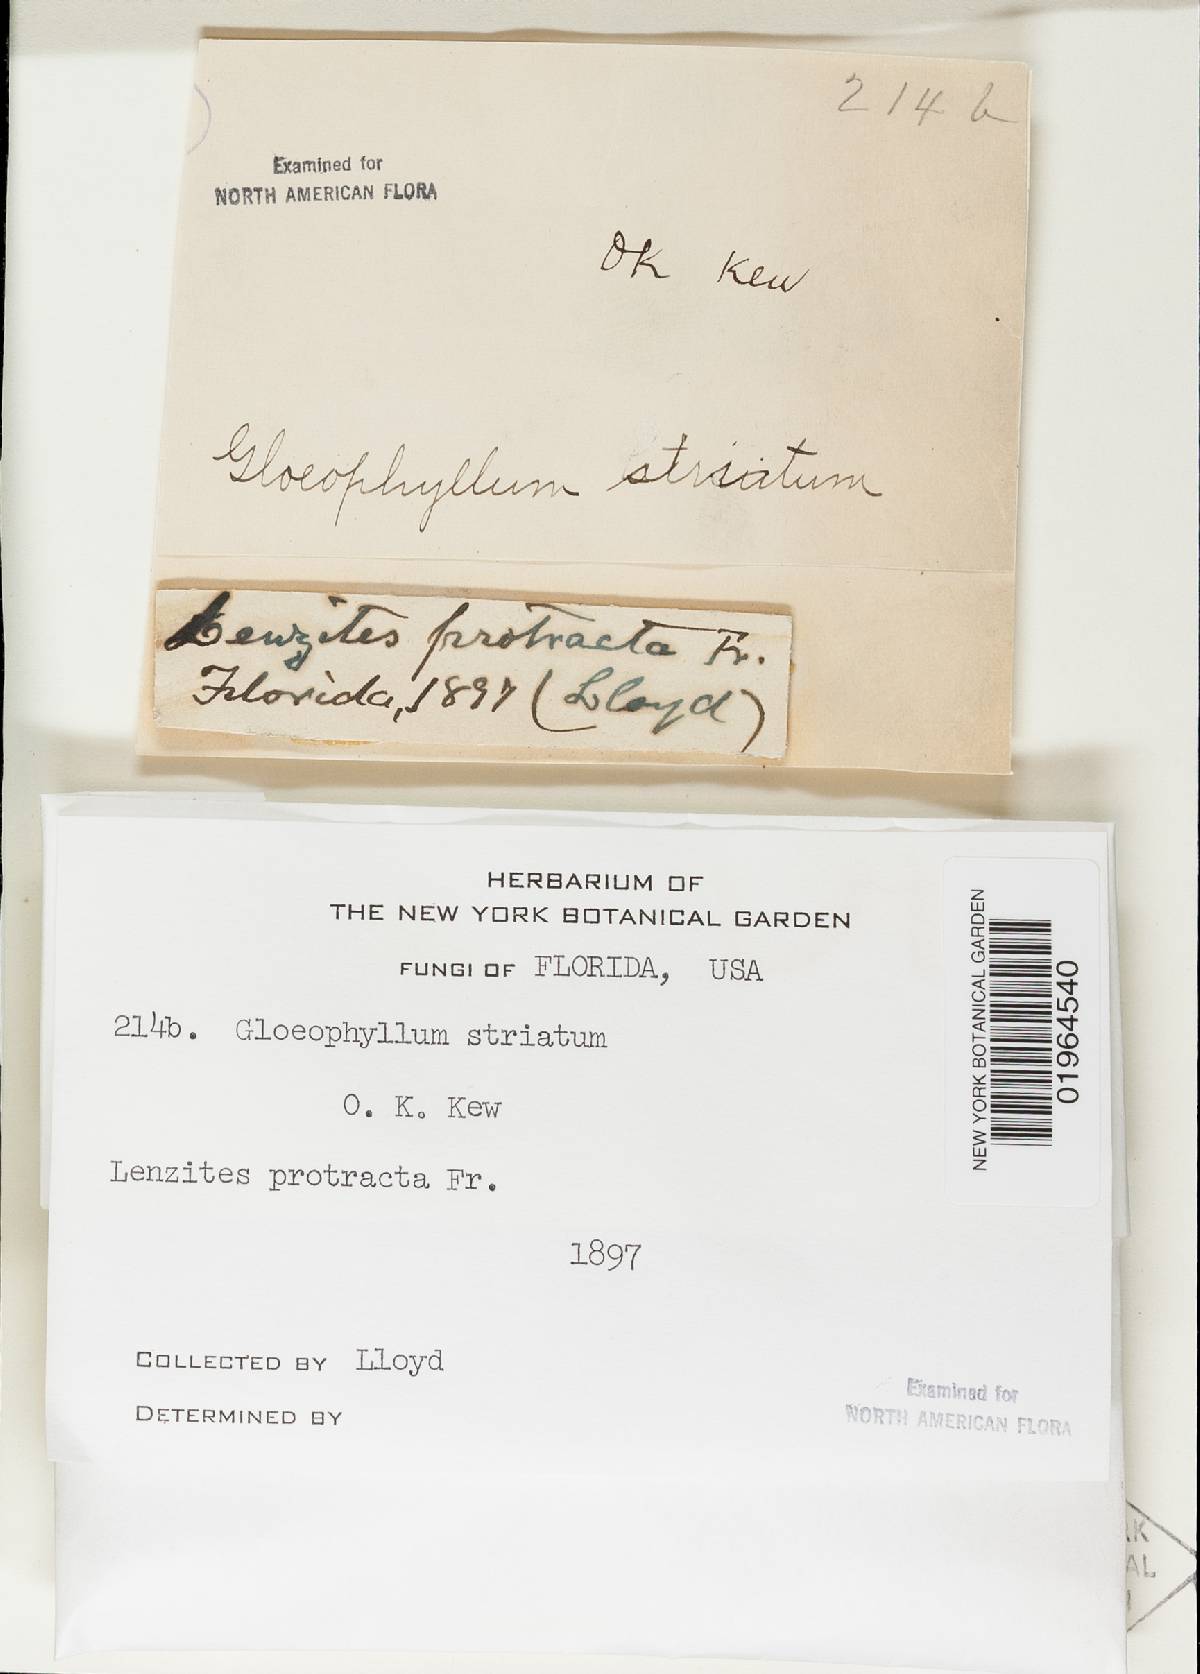 214 b
Examined for
NORTH AMERICAN FLORA
OK Kew
Gloeophyllum striatum
Lenzites protracta Fr.
Florida, 1897 (Lloyd)
HERBARIUM OF
THE NEW YORK BOTANICAL GARDEN
FUNGI OF FLORIDA, USA
214b. Gloeophyllum striatum
O. K. Kew
Lenzites protracta Fr.
1897
COLLECTED BY Lloyd
DETERMINED BY
Examined for
NORTH AMERICAN FLORA
NEW YORK BOTANICAL GARDEN
01964540